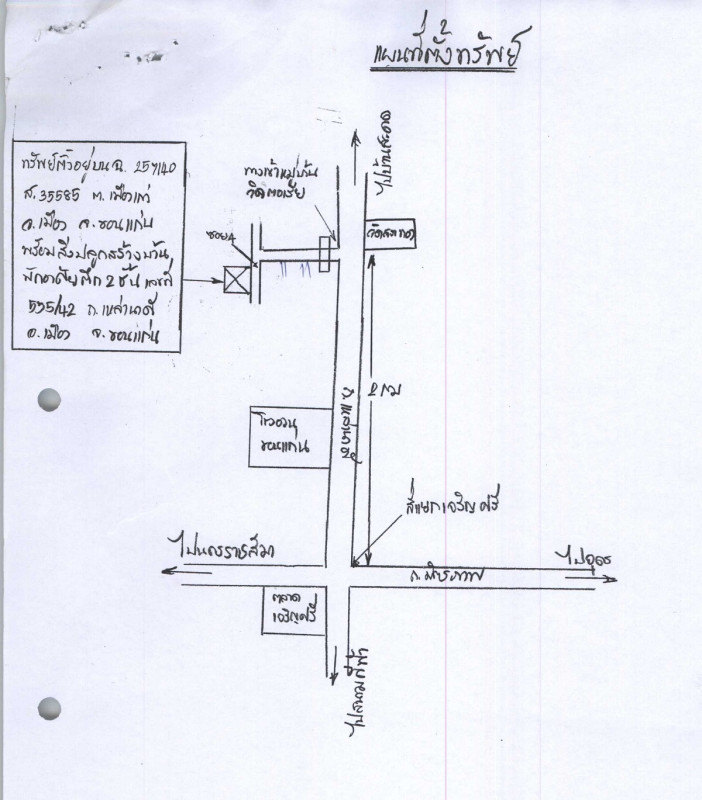 แผนที่ตั้งทรัพย์
ทรัพย์ตั้งอยู่บน ฉ. 257140
ส. 35585 ต. เมืองเก่า
อ. เมือง จ. ขอนแก่น
พร้อมสิ่งปลูกสร้างบ้าน
พักอาศัยตึก 2 ชั้น เลขที่
555/42 ถ. เหล่านาดี
อ. เมือง จ. ขอนแก่น
ทางเข้าหมู่บ้าน
วิคตอเรีย
ซอย 4
ไปบ้านสะอาด
วัดสะอาด
2 กม
ถ. เหล่านาดี
โรงงาน
ขอนแก่น
สี่แยกเจริญศรี
ไปนครราชสีมา
ไปอุดร
ถ. มิตรภาพ
ตลาด
เจริญศรี
ไปสนามกีฬา